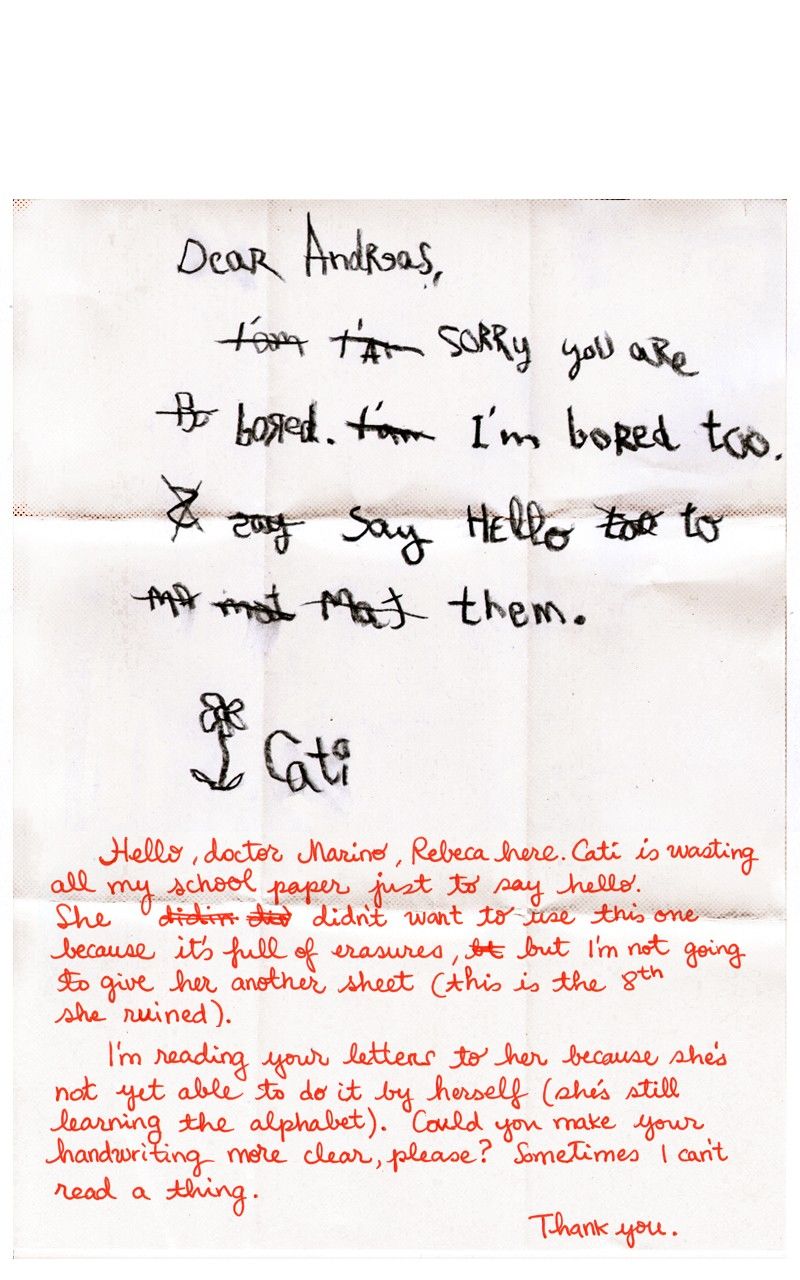 Dear Andreas,
I'am I'AM SORRY you are
Bo bored. I'am I'm bored too.
Z zay Say Hello too to
MA mat Mat them.
Cati
Hello, doctor Marino, Rebeca here. Cati is wasting
all my school paper just to say hello.
She didin did didn't want to use this one
because it's full of erasures, bt but I'm not going
to give her another sheet (this is the 8th
she ruined).
I'm reading your letters to her because she's
not yet able to do it by herself (she's still
learning the alphabet). Could you make your
handwriting more clear, please? Sometimes I can't
read a thing.
Thank you.